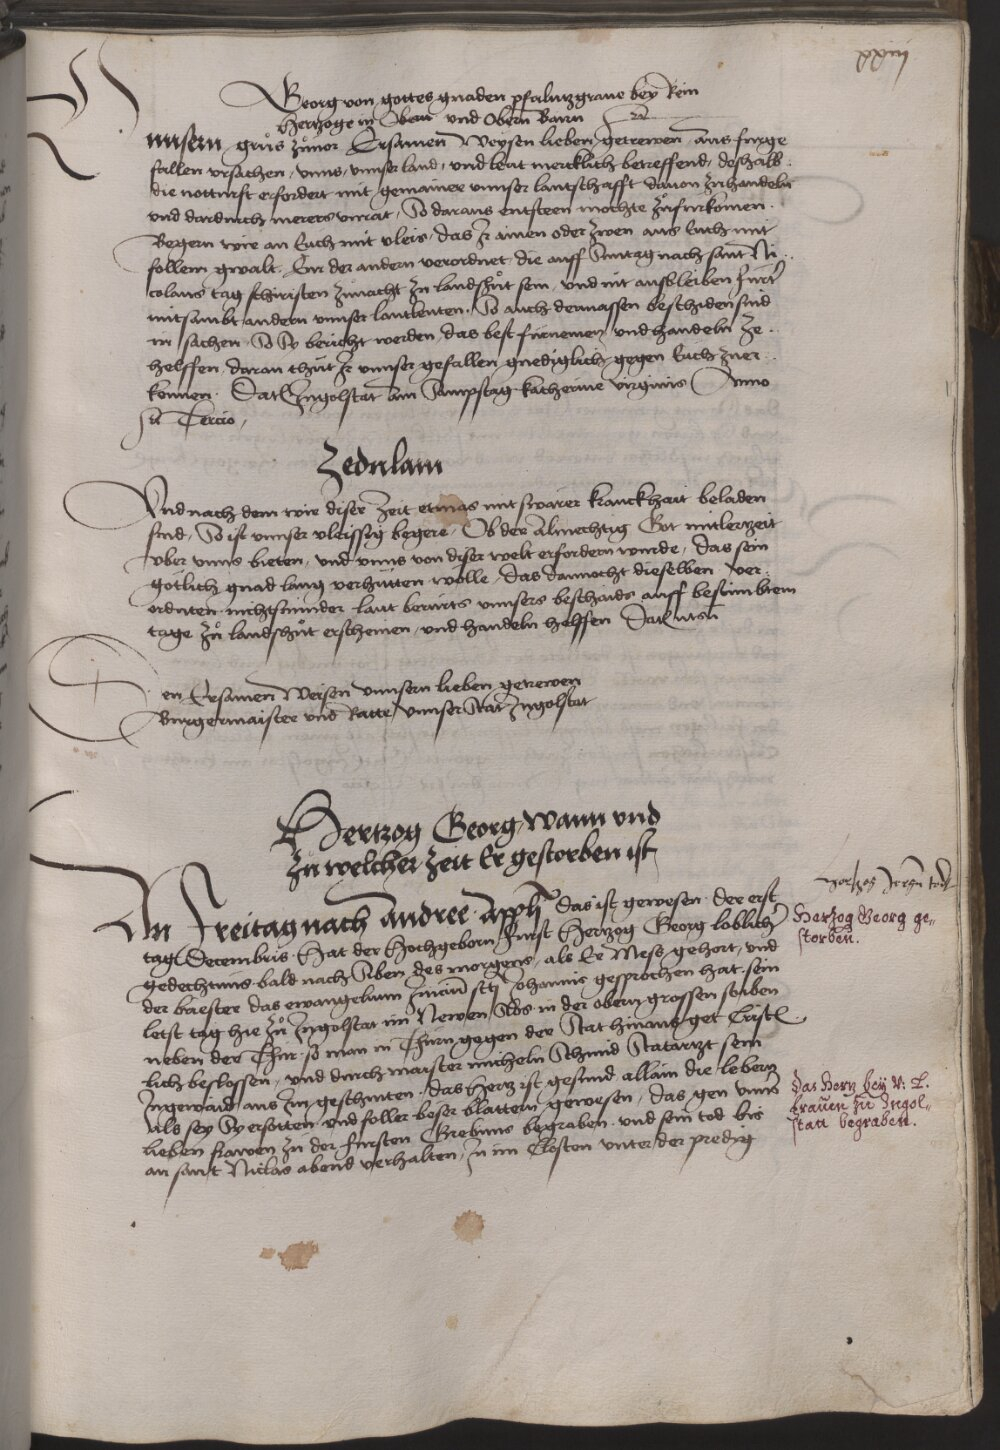 xxiij
Georg von gottes gnaden pfaltzgraue bey Rein
Hertzoge in Nidern und Obern Bairn etc
Unnsern grus zuuor Ersamen Weysen lieben getrewen aus furge
fallen vrsachen, vnns, vnnser land, vnd leut mercklich betreffend, deshalb
die notturft erfordert mit gemainer vnnser lantschafft dauon zuhandeln
vnd dardurch merers vnrat, So daraus entsteen mochte zufurkomen.
Begern wir an Euch mit vleis, das Ir ainen oder zwen aus Euch mit
follem gwalt. Eur der andern verordnet die auff Suntag nach sant Ni
colaus tag schiristen zunacht zu landshut sein, vnd nit ausbleiben furter
mitsambt andern vnnser lantleuten. So auch dermassen beschiden sind
in sachen So Sy bericht werden, das best furnemen vnd handeln ze
helffen, daran thut Ir vnnser gefallen gnediglich gegen Euch zuer
kennen. Dat Ingolstat am Sampstag katherine virginis Anno
In Tercio,
Zedulam
Und nach dem wir diser Zeit etwas mit swarer kranckhait beladen
sind, So ist vnnser vleissig begern, Ob der Almechtig Got mitlerzeit
vber vnns bieten, vnd vnns von diser welt erfordern wurde, das sein
gotlich gnad lang verhutten wolle, das dannocht dieselben ver
ordnten nichtsminder laut berurts vnnsers beschaids auff bestimbtem
tage zu landshut erscheinen, vnd handeln helffen Dat utsu
Den Ersamen Weisen vnnsern lieben getrewen
Burgermaister vnd Ratte vnnser Stat Ingolstat
Hertzog Georg, wann vnd
zu welcher Zeit Er gestorben ist
An Freitag nach Andree appli Das ist gewesen der erst
tag Decembris Hat der Hochgeborn Furst Hertzog Georg loblicher
gedechtnus bald nach Siben des morgens, als Er Mess gehort, vnd
der briester das ewangelium Inicium scti Johannis gesprochen hat sein
letst tag hie zu Ingolstat im Newen Slos in der obern grossen stuben
neben der Thur so man in Thurn gegen der Stat hinaus get Criste
lich beslossen, vnd durch maister micheln Schmid Statartzt sein
Ingewaid aus Im geschniten, das Hertz ist gesund allain die lebern
als sey Sy ersotten vnd foller boser blattern gewesen, das gen vnnser
lieben frawen zu der fursten Grebnus begraben vnd sein tod bis
an sant Niclas abend verhalten, In im Closten unter der predig
Hertzog Jorgn tod
Hertzog Georg ge-
storben.
Das Hertz bey V: L.
Frauen zu Ingol-
statt begraben.